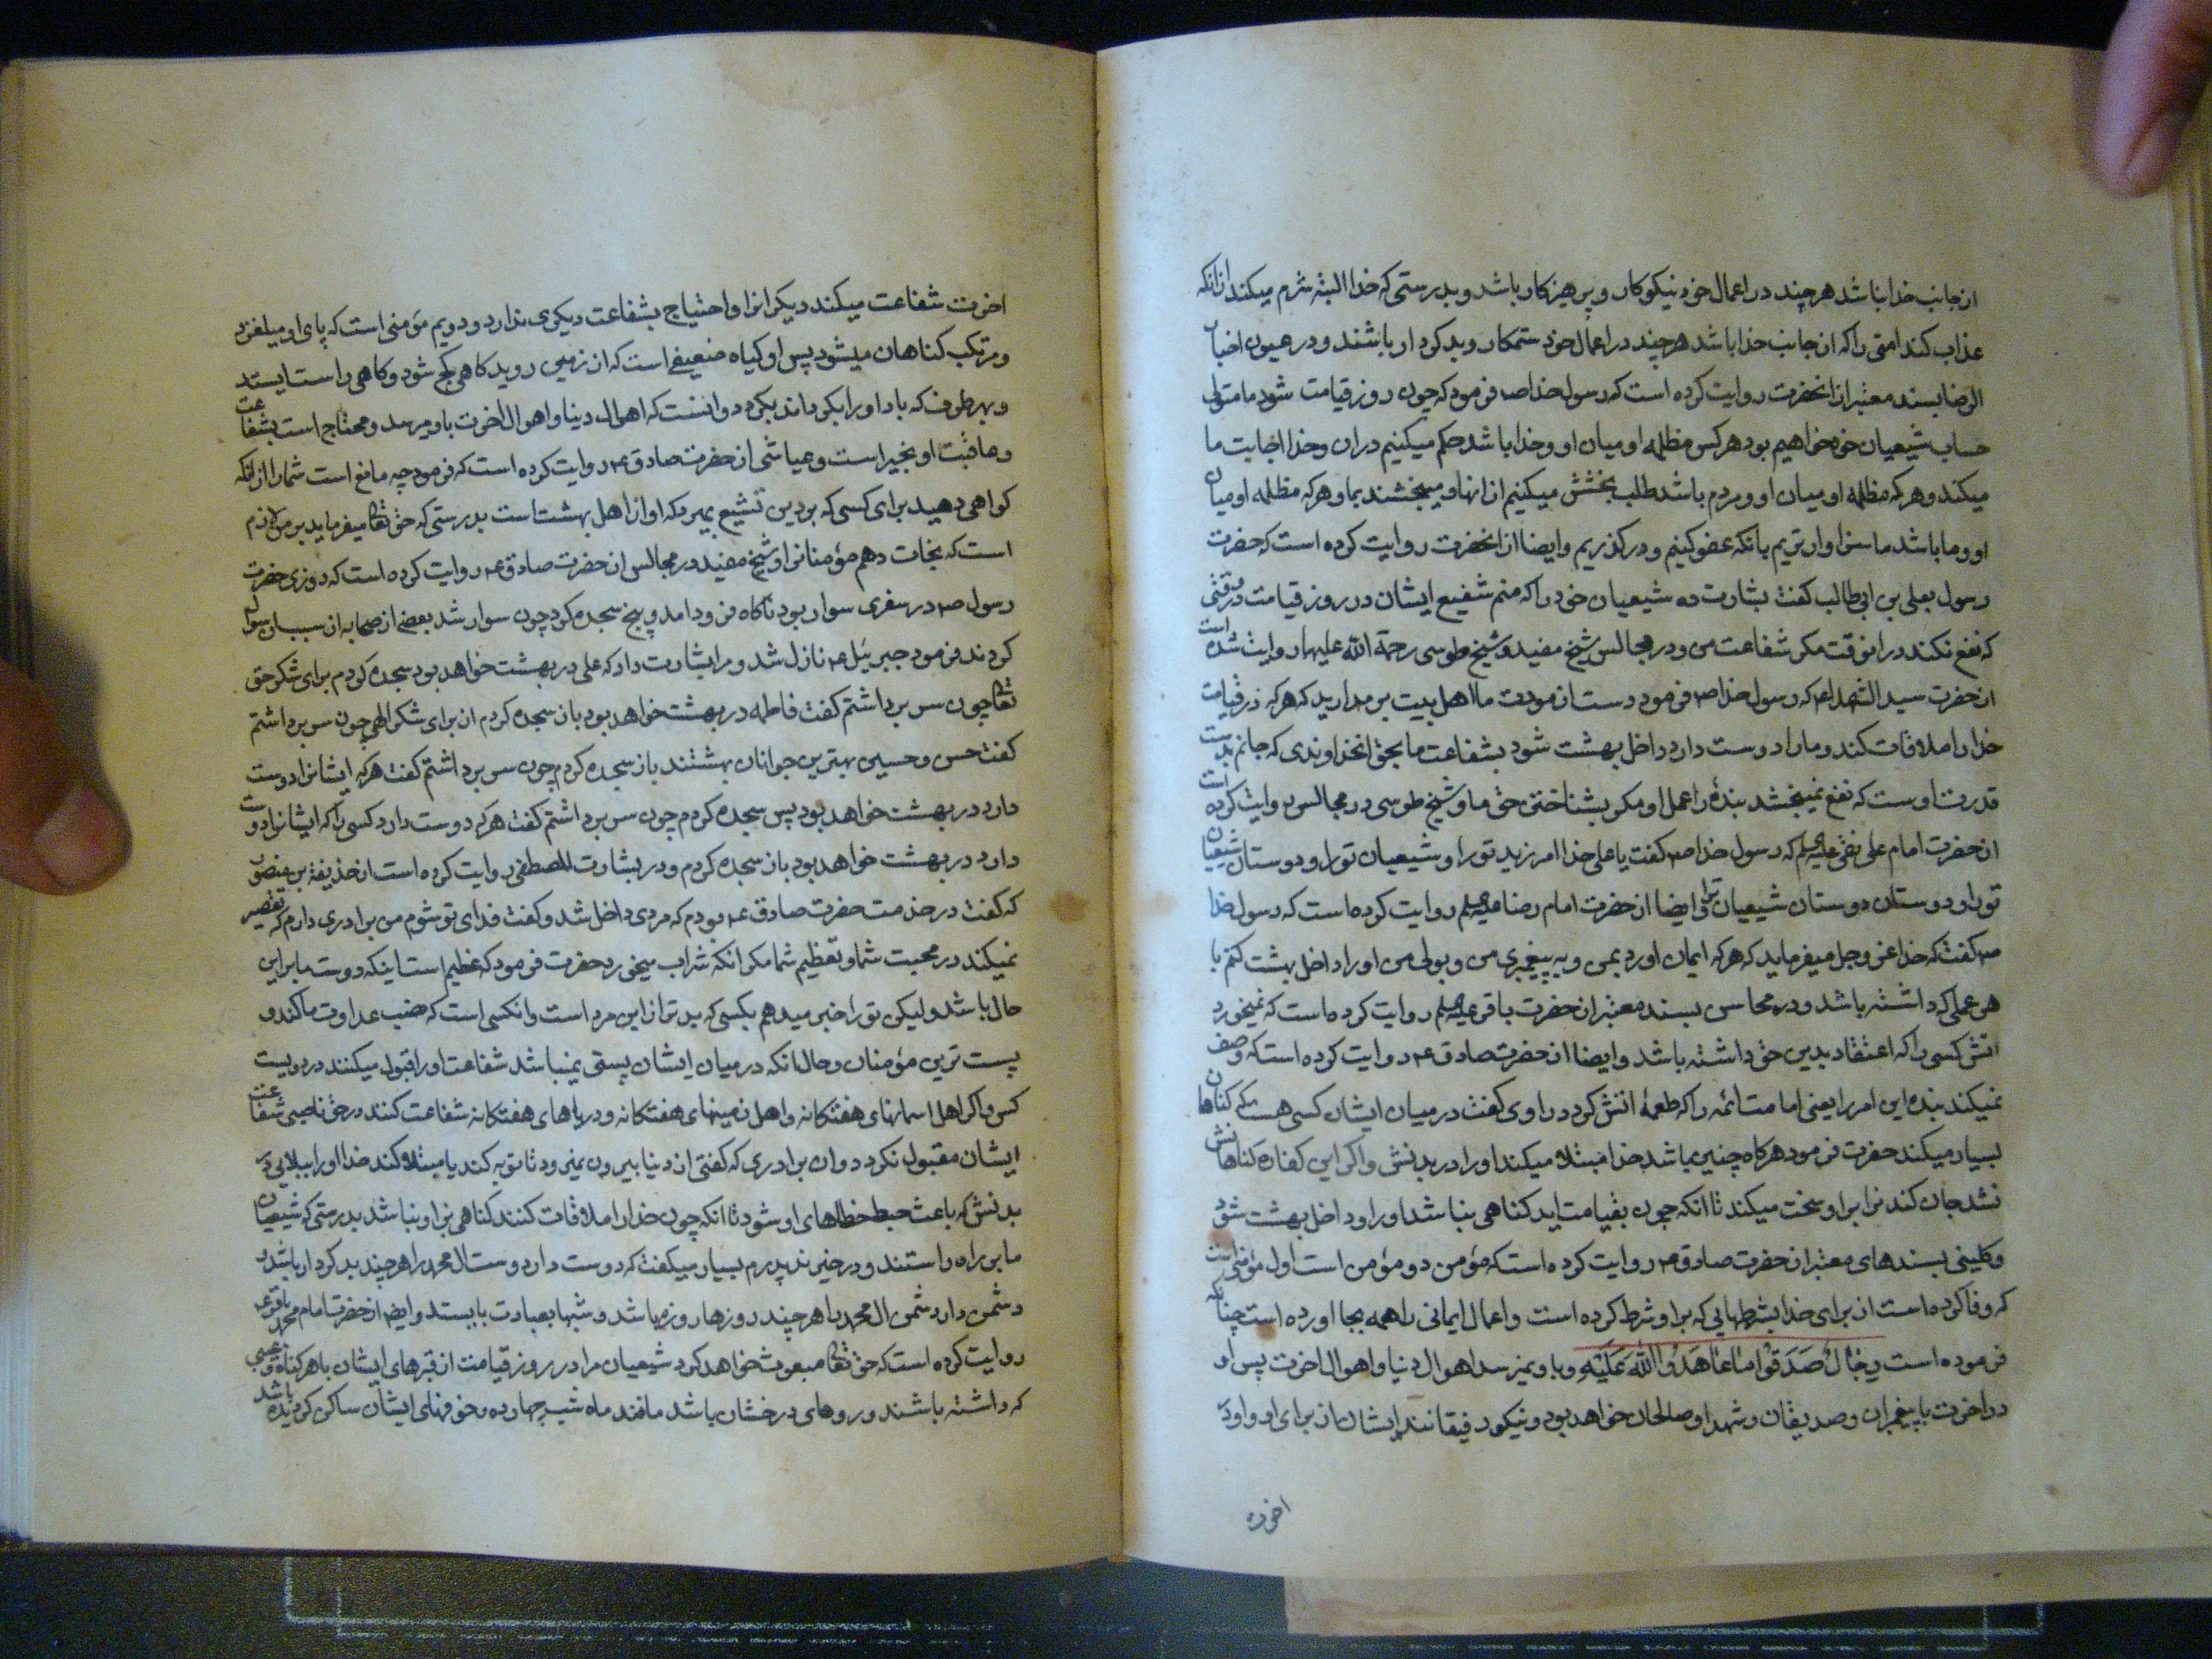 از جانب خدا نباشد هرچند در اعمال خود نیکوکار و پرهیزکار باشد و بدرستی که خدا البته شرم میکند ازانکه
عذاب کند امتی را که از جانب خدا باشد هرچند در اعمال خود ستمکار و بدکردار باشند و در عیون اخبار
الرضا بسند معتبر از انحضرت روایت کرده است که رسول خدا ص فرمود که چون روز قیامت شود ما متولی
حساب شیعیان خود خواهیم بود هرکس مظلمه او میان او و خدا باشد حکم میکنیم دران و خدا اجابت ما
میکند و هرکه مظلمه او میان او و مردم باشد طلب بخشش میکنیم از انها و میبخشند بما و هرکه مظلمه او میان
او و ما باشد ما سزاوارتریم بانکه عفو کنیم و درگذریم و ایضا از انحضرت روایت کرده است که حضرت
رسول بعلی بن ابی طالب گفت بشارت ده شیعیان خود را که منم شفیع ایشان در روز قیامت در وقتی
که نفع نکند درانوقت مکر شفاعت من و در مجالس شیخ مفید و شیخ طوسی رحمة الله علیهما روایت شده است
از حضرت سید الشهدا ع که رسول خدا ص فرمود دست از مودت ما اهل بیت برمدارید که هرکه در قیامت
خدا را ملاقات کند و ما را دوست دارد داخل بهشت شود بشفاعت ما بحق انخداوندی که جانم بدست
قدرت اوست که نفع نمیبخشد بنده را عمل او مکر بشناختن حق ما و شیخ طوسی در مجالس روایت کرده است
از حضرت امام علی نقی علیه السلم که رسول خدا ص گفت یا علی خدا امرزید تو را و شیعیان تو را و دوستان شیعیان
تو را و دوستان دوستان شیعیان ترا و ایضا از حضرت امام رضا علیه السلم روایت کرده است که رسول خدا
ص گفت که خدا عز و جل میفرماید که هرکه ایمان اورد بمن و به پیغمبری من و بولی من او را داخل بهشت کنم با
هر عملی که داشته باشد و در محاسن بسند معتبر از حضرت باقر علیه السلم روایت کرده است که نمیخورد
اتش کسی را که اعتقاد بدین حق داشته باشد و ایضا از حضرت صادق ع روایت کرده است که وصف
نمیکند بنده این امر را یعنی امامت ائمه را که طعمه اتش کردد راوی گفت در میان ایشان کسی هست که کناهان
بسیار میکند حضرت فرمود هرکاه چنین باشد خدا مبتلا میکند او را در بدنش و اکر این کفاره کناهانش
نشد جان کندن را بر او سخت میکند تا انکه چون بقیامت اید کناهی نباشد او را و داخل بهشت شود
و کلینی بسندهای معتبر از حضرت صادق ع روایت کرده است که مؤمن دو مؤمن است اول مؤمنی است
که وفا کرده است از برای خدا بشرطهایی که بر او شرط کرده است و اعمال ایمانی را همه بجا اورده است چنانکه
فرموده است رِجٰالٌ صَدَقُوا مٰا عٰاهَدُوا اللّٰهَ عَلَیْهِ و باو نمیرسد اهوال دنیا و اهوال اخرت پس او
در اخرت با پیغمبران و صدیقان و شهدا و صالحان خواهد بود و نیکو رفیقانند ایشان از برای او و او در
اخرت
اخرت شفاعت میکند دیکرانرا و احتیاج بشفاعت دیکری ندارد و دویم مؤمنی است که پای او میلغزد
و مرتکب کناهان میشود پس او کیاه ضعیفی است که از زمین روید کاهی کج شود و کاهی راست ایستد
و بهر طرف که باد او را بکرداند بکردد و انست که اهوال دنیا و اهوال اخرت باو میرسد و محتاج است بشفاعت
و عاقبت او بخیر است و عیاشی از حضرت صادق ع روایت کرده است که فرمود چه مانع است شما را از انکه
کواهی دهید برای کسی که بر دین تشیع بمیرد که او از اهل بهشت است بدرستی که حق تعالی میفرماید بر من لازم
است که نجات دهم مؤمنانرا و شیخ مفید در مجالس از حضرت صادق ع روایت کرده است که روزی حضرت
رسول ص در سفری سوار بود ناکاه فرود امد و پنج سجده کرد چون سوار شد بعضی از صحابه از سبب او سوال
کردند فرمود جبرئیل ع نازل شد و مرا بشارت داد که علی در بهشت خواهد بود سجده کردم برای شکر حق
تعالی چون سر برداشتم گفت فاطمه در بهشت خواهد بود باز سجده کردم از برای شکر الهی چون سر برداشتم
گفت حسن و حسین بهترین جوانان بهشتند باز سجده کردم چون سر برداشتم گفت هرکه ایشانرا دوست
دارد در بهشت خواهد بود پس سجده کردم چون سر برداشتم گفت هرکه دوست دارد کسی را که ایشانرا دوست
دارد در بهشت خواهد بود باز سجده کردم و در بشارت المصطفی روایت کرده است از حذیفة بن منصور
که گفت در خدمت حضرت صادق ع بودم که مردی داخل شد و گفت فدای تو شوم من برادری دارم که تقصیر
نمیکند در محبت شما و تعظیم شما مکر انکه شراب میخورد حضرت فرمود که عظیم است اینکه دوست ما براین
حال باشد ولیکن تو را خبر میدهم بکسی که بدتر از این مرد است و انکسی است که نصب عداوت ما کند و
پست ترین مؤمنان و حال انکه در میان ایشان پستی نمیباشد شفاعت او را قبول میکنند در دویست
کس و اکر اهل اسمانهای هفتکانه و اهل زمینهای هفتکانه و دریاهای هفتکانه شفاعت کنند در حق ناصبی شفاعت
ایشان مقبول نکردد و ان برادری که گفتی از دنیا بیرون نمیرود تا توبه کند یا مبتلا کند خدا او را ببلایی در
بدنش که باعث حبط خطاهای او شود تا انکه چون خدا را ملاقات کنند کناهی بر او نباشد بدرستی که شیعیان
ما بر راه راستند و در خیرند پدرم بسیار میکفت که دوست دار دوست ال محمد را هرچند بدکردار باشد و
دشمن دار دشمن ال محمد را هرچند روزها روزه باشد و شبها بعبادت بایستد و ایضا از حضرت امام محمد باقر ع
روایت کرده است که حق تعالی مبعوث خواهد کرد شیعیان ما را در روز قیامت از قبرهای ایشان با هر کناه و عیبی
که داشته باشند و روهای درخشان باشد مانند ماه شب چهارده و خوفهای ایشان ساکن کردیده باشد